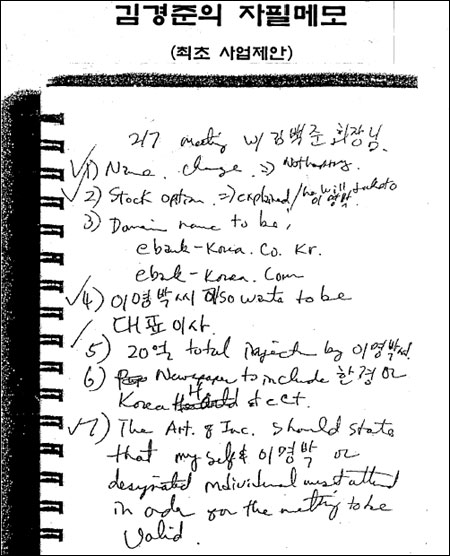 김경준의 자필메모
(최초 사업제안)
2/7 meeting w/ 김백준 회장님.
1) Name change ⇒
2) Stock option ⇒ explained / he will to 이명박
3) Domain name to be,
ebank-Korea.Co.Kr.
ebank-Korea.Com
4) 이명박씨 also wants to be
대표이사.
5) 20억 total injection by 이명박씨.
6) Newspaper to include 한경 or
Korea Herald etc.
7) The Art. of Inc. should state
that my self & 이명박 or
designated individual must attend
in order for the meeting to be
valid.